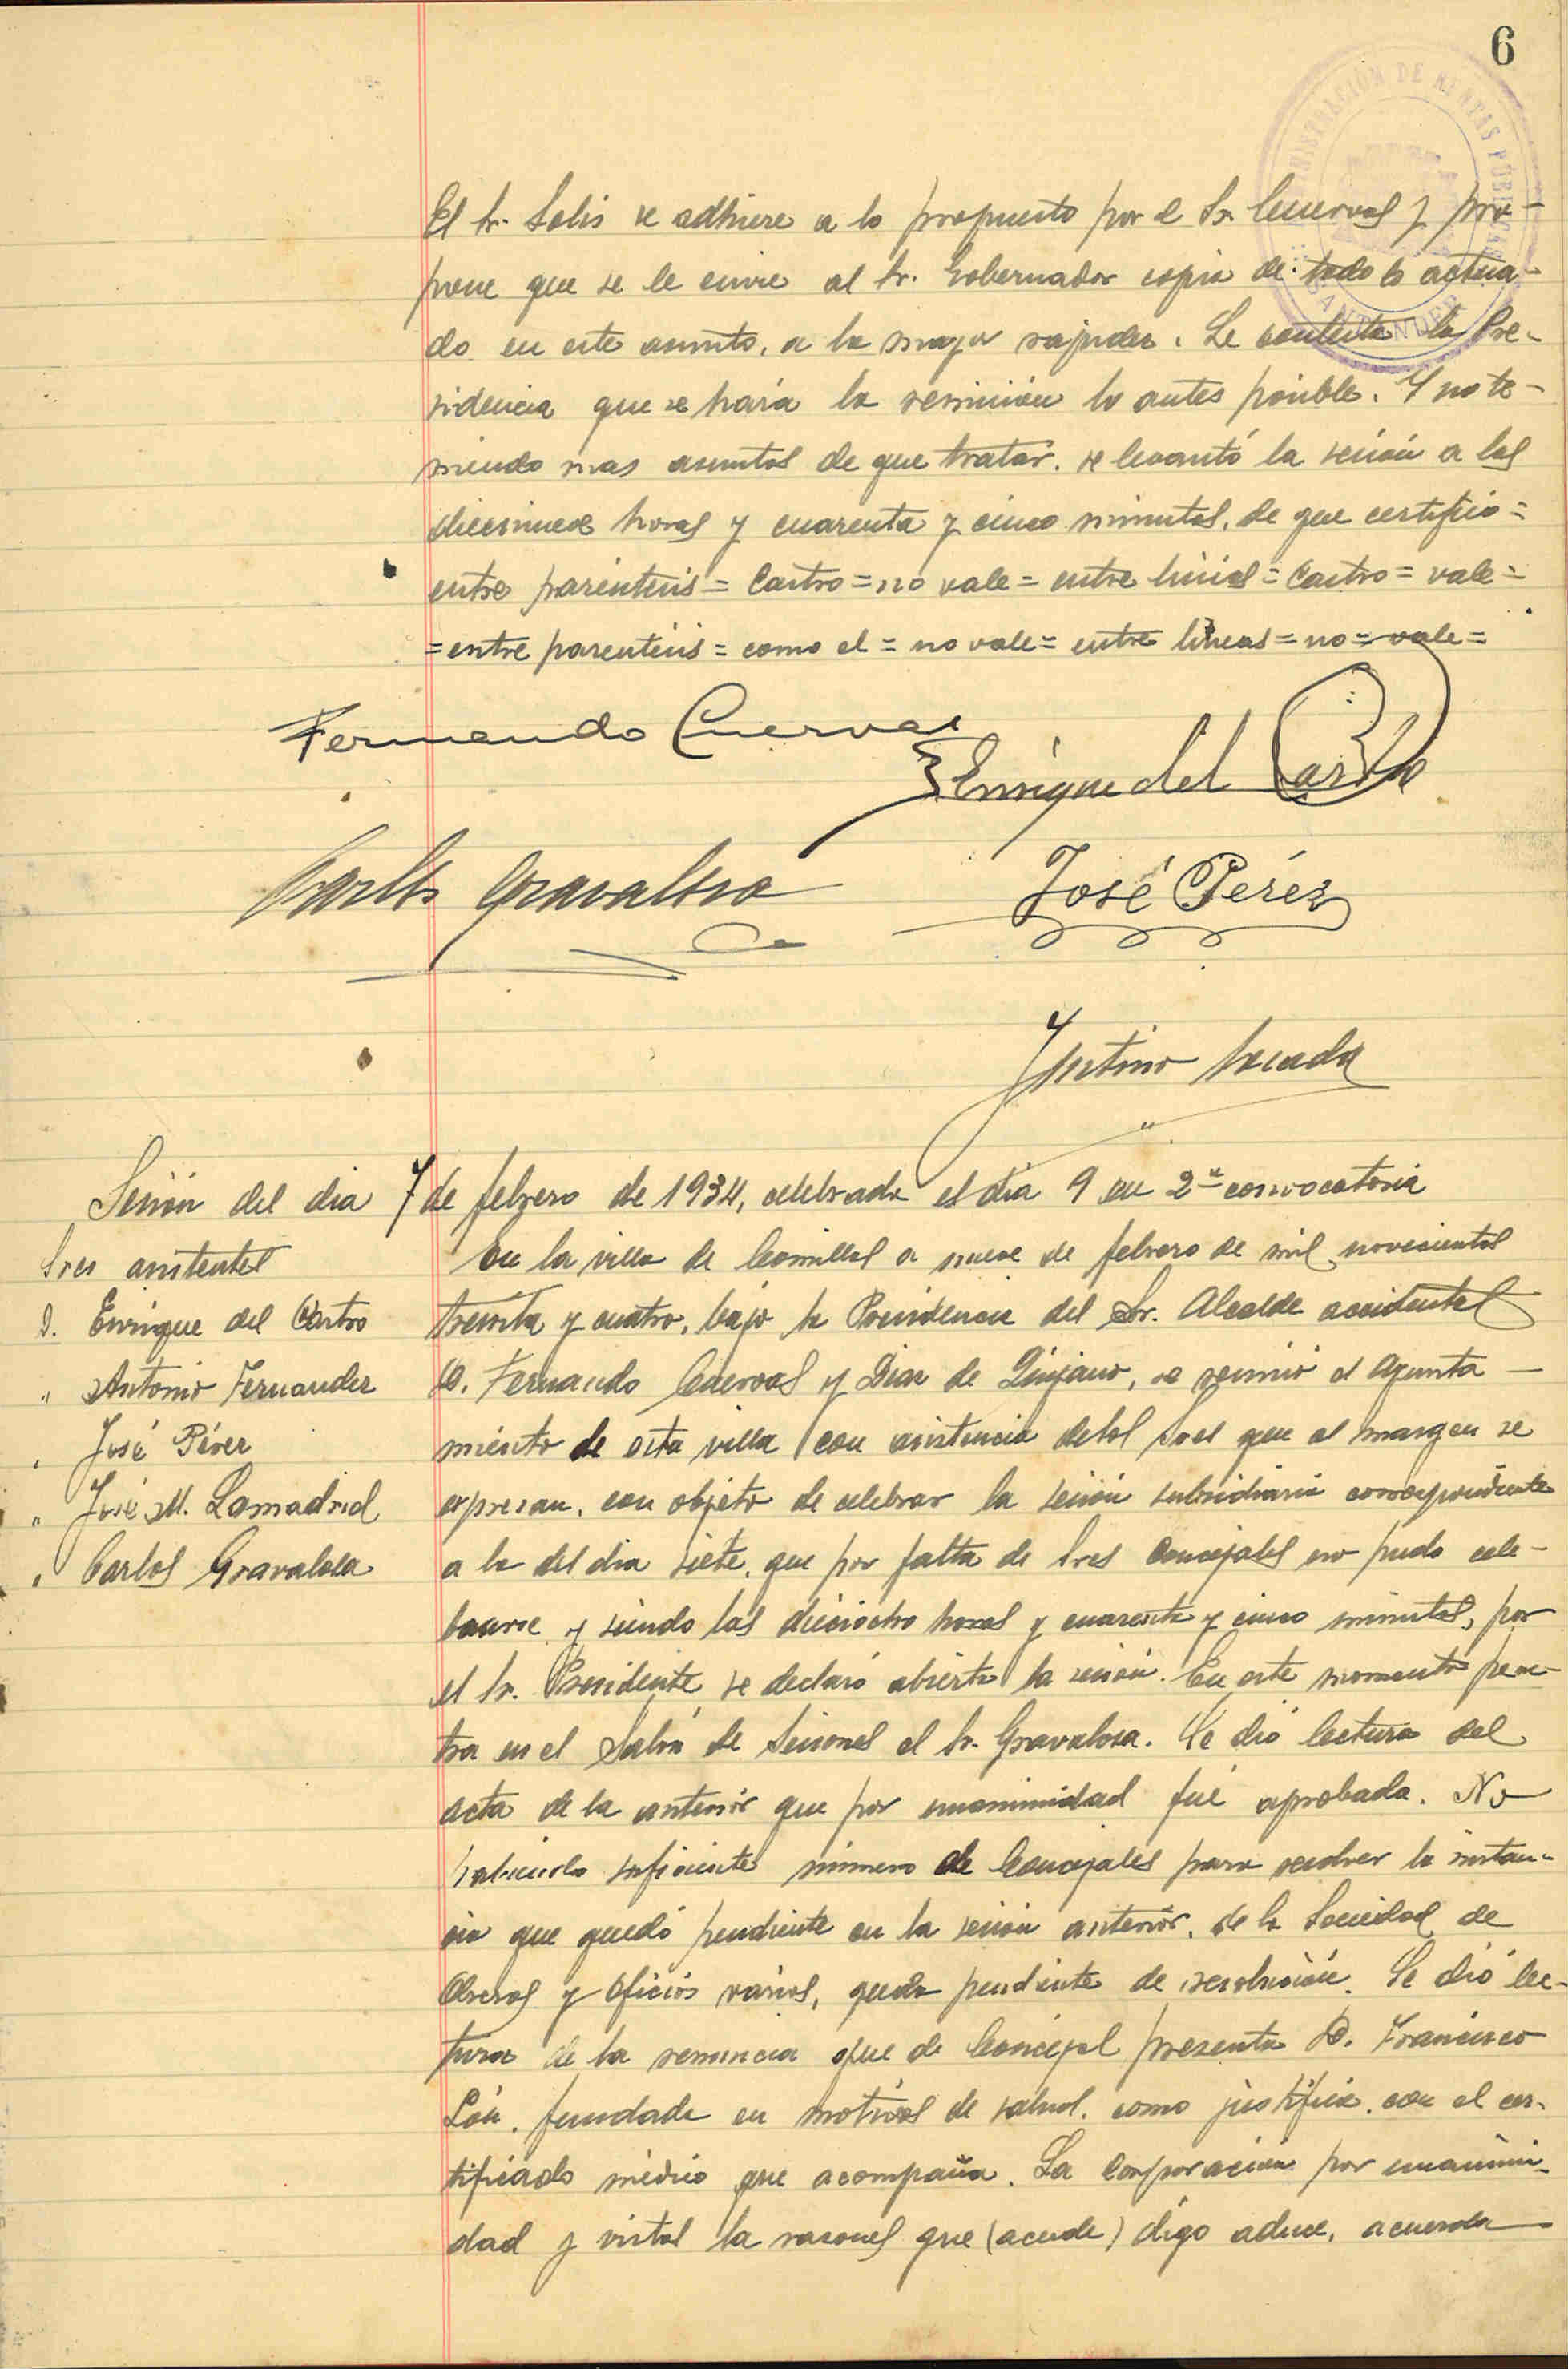 6
ADMINISTRACIÓN DE RENTAS PÚBLICAS
SANTANDER
El Sr. Solis se adhiere a lo propuesto por el Sr. Cuervas y pro-
pone que se le envie al Sr. Gobernador copia de todo lo actua-
do en este asunto, a la mayor rapidez. Le contesta la Pre-
sidencia que se hará la remisión lo antes posible. Y no te-
niendo mas asuntos de que tratar, se levantó la sesión a las
diecinueve horas y cuarenta y cinco minutos, de que certifico=
entre paréntesis = Castro = no vale = entre lineas = Castro = vale =
= entre parentesis = como el = no vale = entre lineas = no = vale =
Fernando Cuervas
Enrique del Castro
Carlos Gravalosa
José Pérez
Justino
Sesión del dia 7 de febrero de 1934, celebrada el dia 9 en 2ª convocatoria
Sres asistentes
D. Enrique del Castro
" Antonio Fernandez
" José Pérez
" José M. Lamadrid
" Carlos Gravalosa
En la villa de Comillas a nueve de febrero de mil novecientos
treinta y cuatro, bajo la Presidencia del Sr. Alcalde accidental
D. Fernando Cuervas y Diaz de Quijano, se reunió el Ayunta-
miento de esta villa con asistencia de los Sres que al margen se
expresan, con objeto de celebrar la sesión subsidiaria correspondiente
a la del dia siete, que por falta de Sres Concejales no pudo cele-
brarse y siendo las dieciocho horas y cuarenta y cinco minutos, por
el Sr. Presidente se declaró abierta la sesión. En este momento pene-
tra en el Salón de Sesiones el Sr. Gravalosa. Se dió lectura del
acta de la anterior que por unanimidad fué aprobada. No
habiendo suficiente número de Concejales para resolver la instan-
cia que quedó pendiente en la sesión anterior, de la Sociedad de
Obreros y Oficios varios, queda pendiente de resolución. Se dió lec-
tura de la renuncia que de Concejal presenta D. Francisco
fundada en motivos de salud, como justifica con el cer-
tificado médico que acompaña. La Corporación por unanimi-
dad y vistas la razones que (acude) digo aduce, acuerda